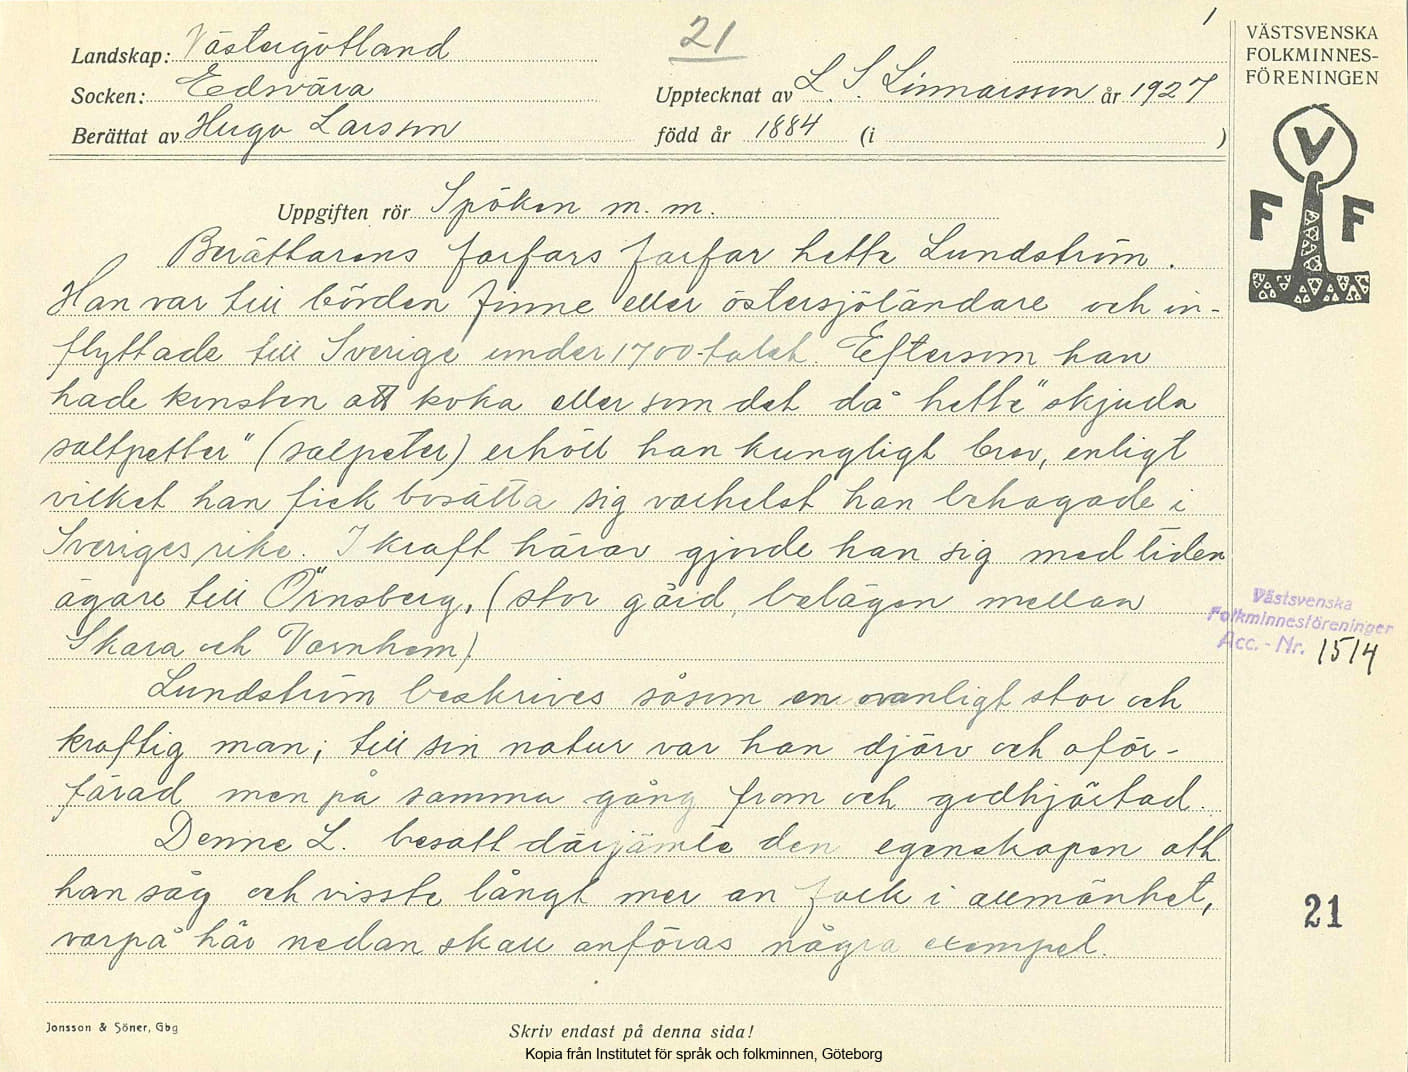 1
21
Landskap: Västergötland
Socken: Edsvära
Upptecknat av L. S. Linnarsson år 1927
Berättat av Hugo Larsson
född år 1884 (i )
Uppgiften rör Spöken m. m.
Berättarens farfars farfar hette Lundström.
Han var till börden finne eller östersjöländare och in-
flyttade till Sverige under 1700-talet. Eftersom han
hade konsten att koka eller som det då hette "skjuda
saltpetter" (salpeter) erhöll han kungligt brev, enligt
vilket han fick bosätta sig varhelst han behagade i
Sveriges rike. I kraft härav gjorde han sig med tiden
ägare till Örnsberg, (stor gård, belägen mellan
Skara och Varnhem).
Lundström beskrives såsom en ovanligt stor och
kraftig man; till sin natur var han djärv och oför-
färad men på samma gång from och godhjärtad.
Denne L. besatt därjämte den egenskapen att
han såg och visste långt mer än folk i allmänhet,
varpå här nedan skall anföras några exempel.
Jonsson & Söner, Gbg
Skriv endast på denna sida!
Kopia från Institutet för språk och folkminnen, Göteborg
VÄSTSVENSKA
FOLKMINNES-
FÖRENINGEN
V
F F
Västsvenska
Folkminnesföreningen
Acc. - Nr. 1514
21